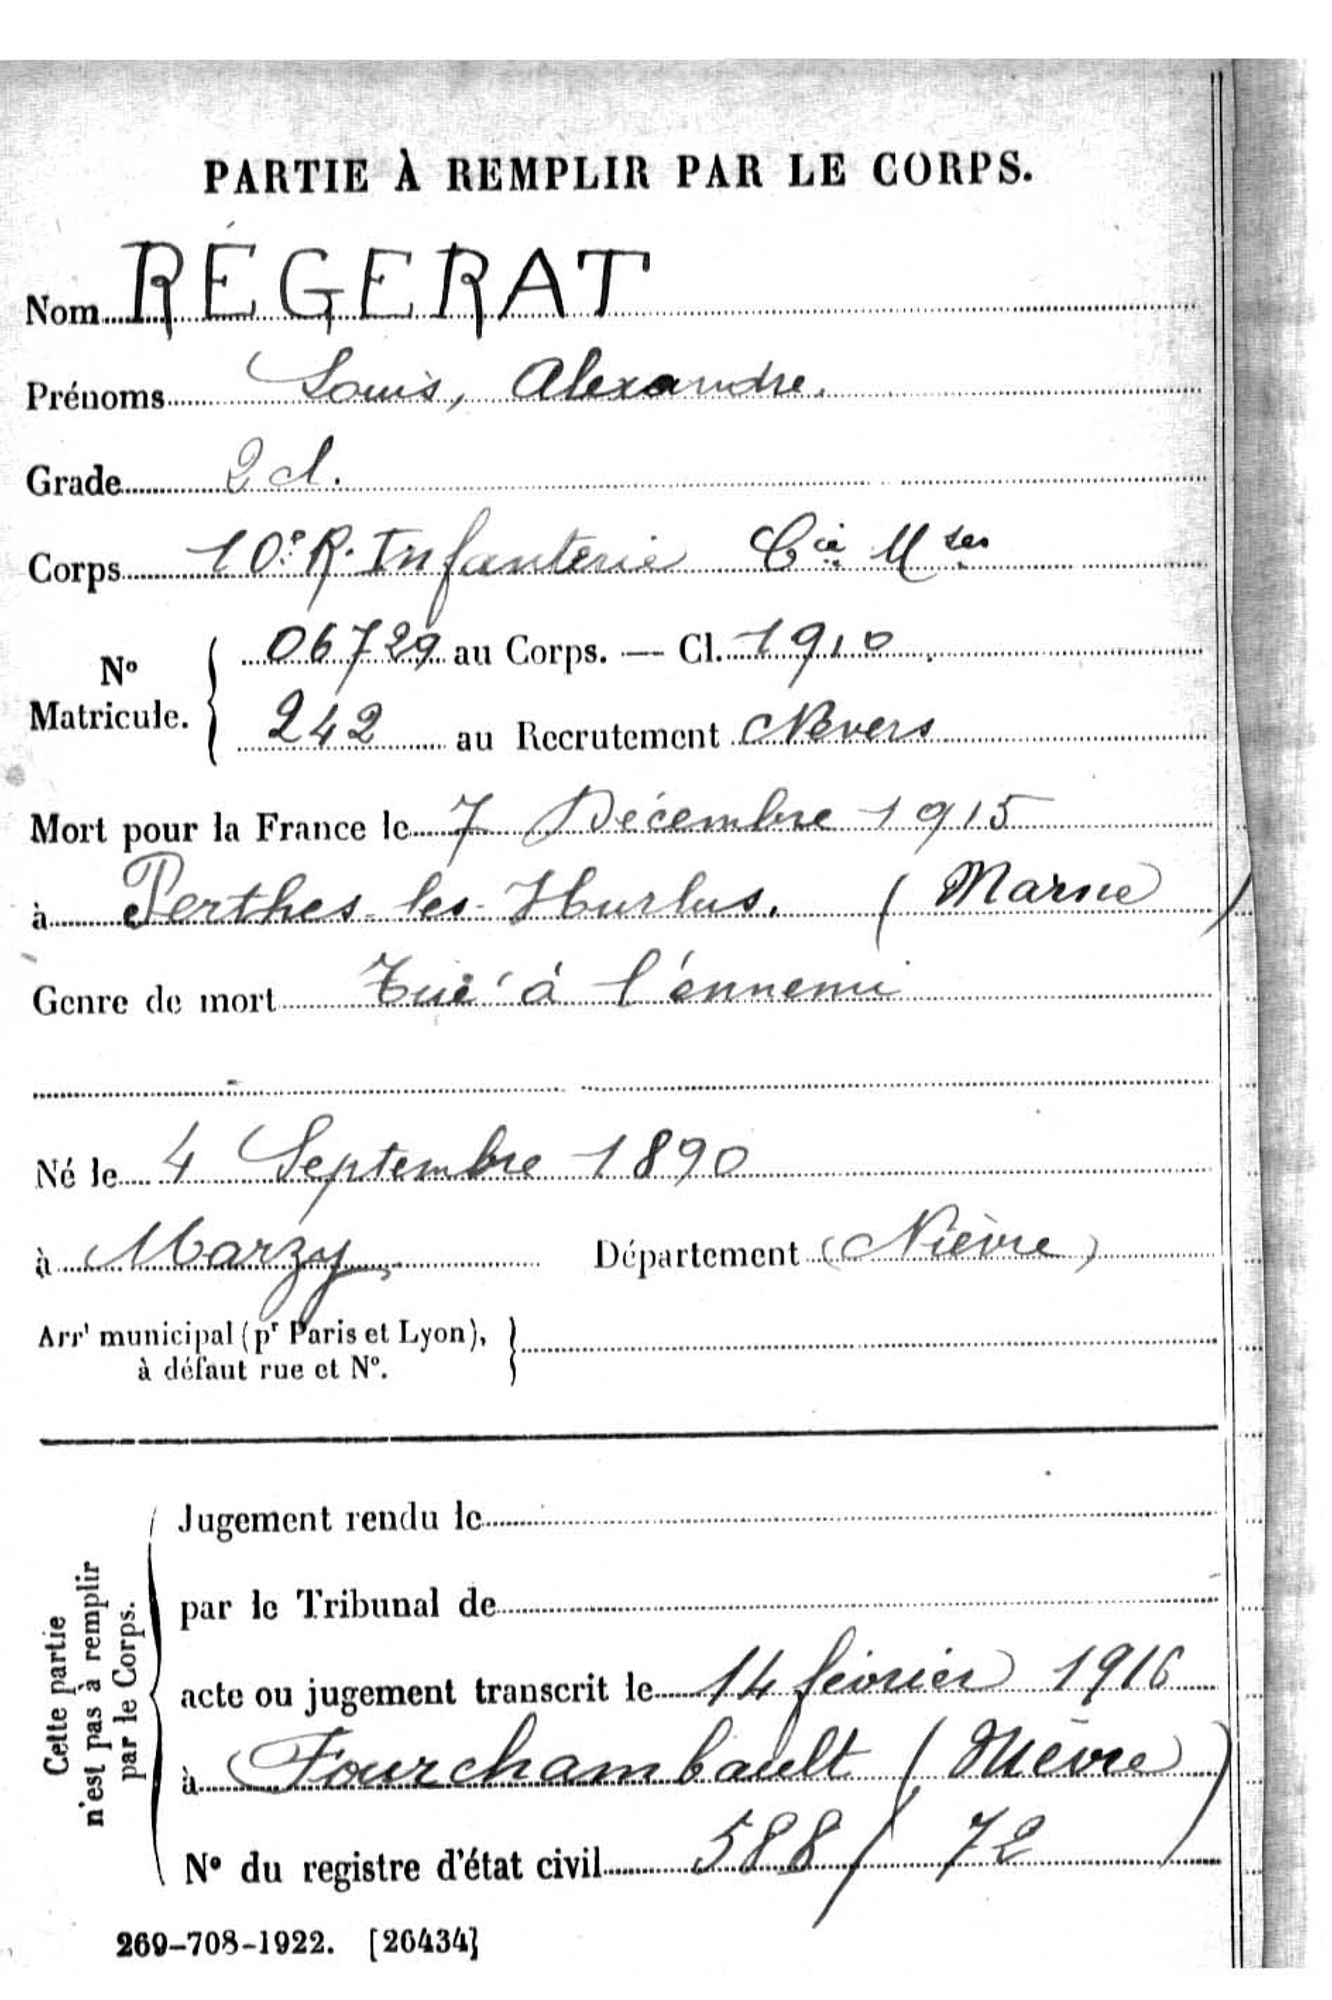 PARTIE À REMPLIR PAR LE CORPS.
Nom RÉGERAT
Prénoms Louis, Alexandre.
Grade 2 cl.
Corps 10e R. Infanterie Cie Mses
No Matricule. 06729 au Corps. — Cl. 1910
242 au Recrutement Nevers
Mort pour la France le 7 Décembre 1915
à Perthes-les-Hurlus. (Marne)
Genre de mort Tué à l'ennemi
Né le 4 Septembre 1890
à Marzy Département (Nièvre)
Arrt municipal (pr Paris et Lyon),
à défaut rue et No.
Cette partie
n'est pas à remplir
par le Corps.
Jugement rendu le
par le Tribunal de
acte ou jugement transcrit le 14 février 1916
à Fourchambault (Nièvre)
No du registre d'état civil 588/72
269-708-1922. [26434]